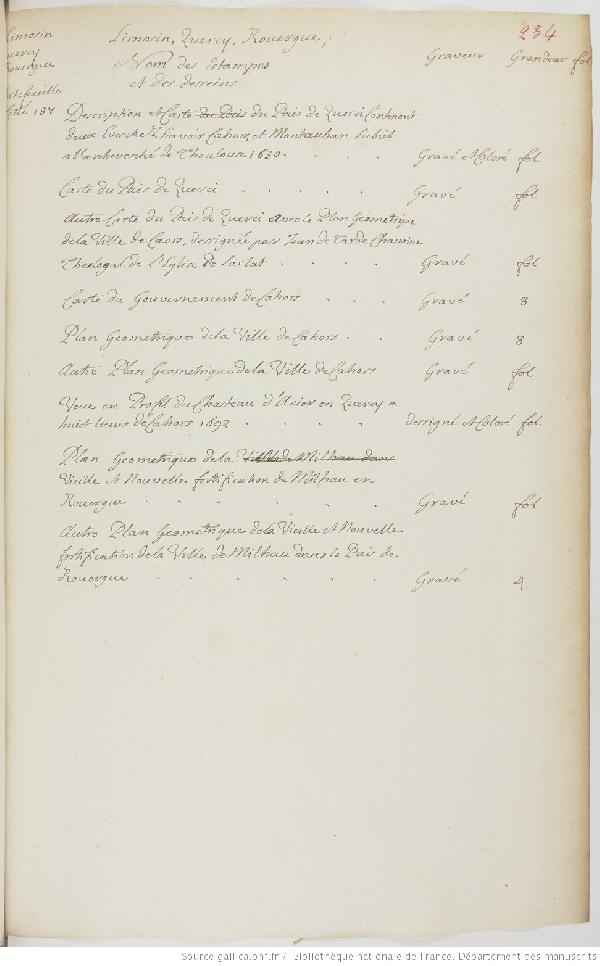 234
Limosin
Quercy
Rouergue
Limosin, Quercy, Rouergue,
Nom des estampes
et des desseins
Graveur Grandeur fol
Description et Carte de Païs du Païs de Querci Contenant
deux Eveschez Sçavoir Cahors, et Montauban Subiet
a l'archevesché de Thoulouse 1630 . . . Gravé et Coloré fol
Carte du Pais de Querci . . . . Gravé fol.
Autre Carte du Pais de Querci avec le Plan Geometrique
de la Ville de Caors, dessignée par Jean de Tarde Chanoine
Theologal de l'Eglise de Sarlat . . . Gravé fol
Carte du Gouvernement de Cahors . . . Gravé 8
Plan Geometrique de la Ville de Cahors . . Gravé 8
Autre Plan Geometrique de la Ville de Cahors Gravé fol
Veue en Profil du Chasteau d'Acier en Quercy a
huit lieues de Cahors 1692 . . . . dessigné et Coloré fol.
Plan Geometrique de la Ville de Milhau dans
Vieille et Nouvelle fortification de Milhau en
Rouergue . . . . . . Gravé fol
Autre Plan Geometrique de la Vieille et Nouvelle
fortification de la Ville de Milhau dans le Pais de
Rouergue . . . . . Gravé 4
Source gallica.bnf.fr / Bibliothèque nationale de France. Département des manuscrits